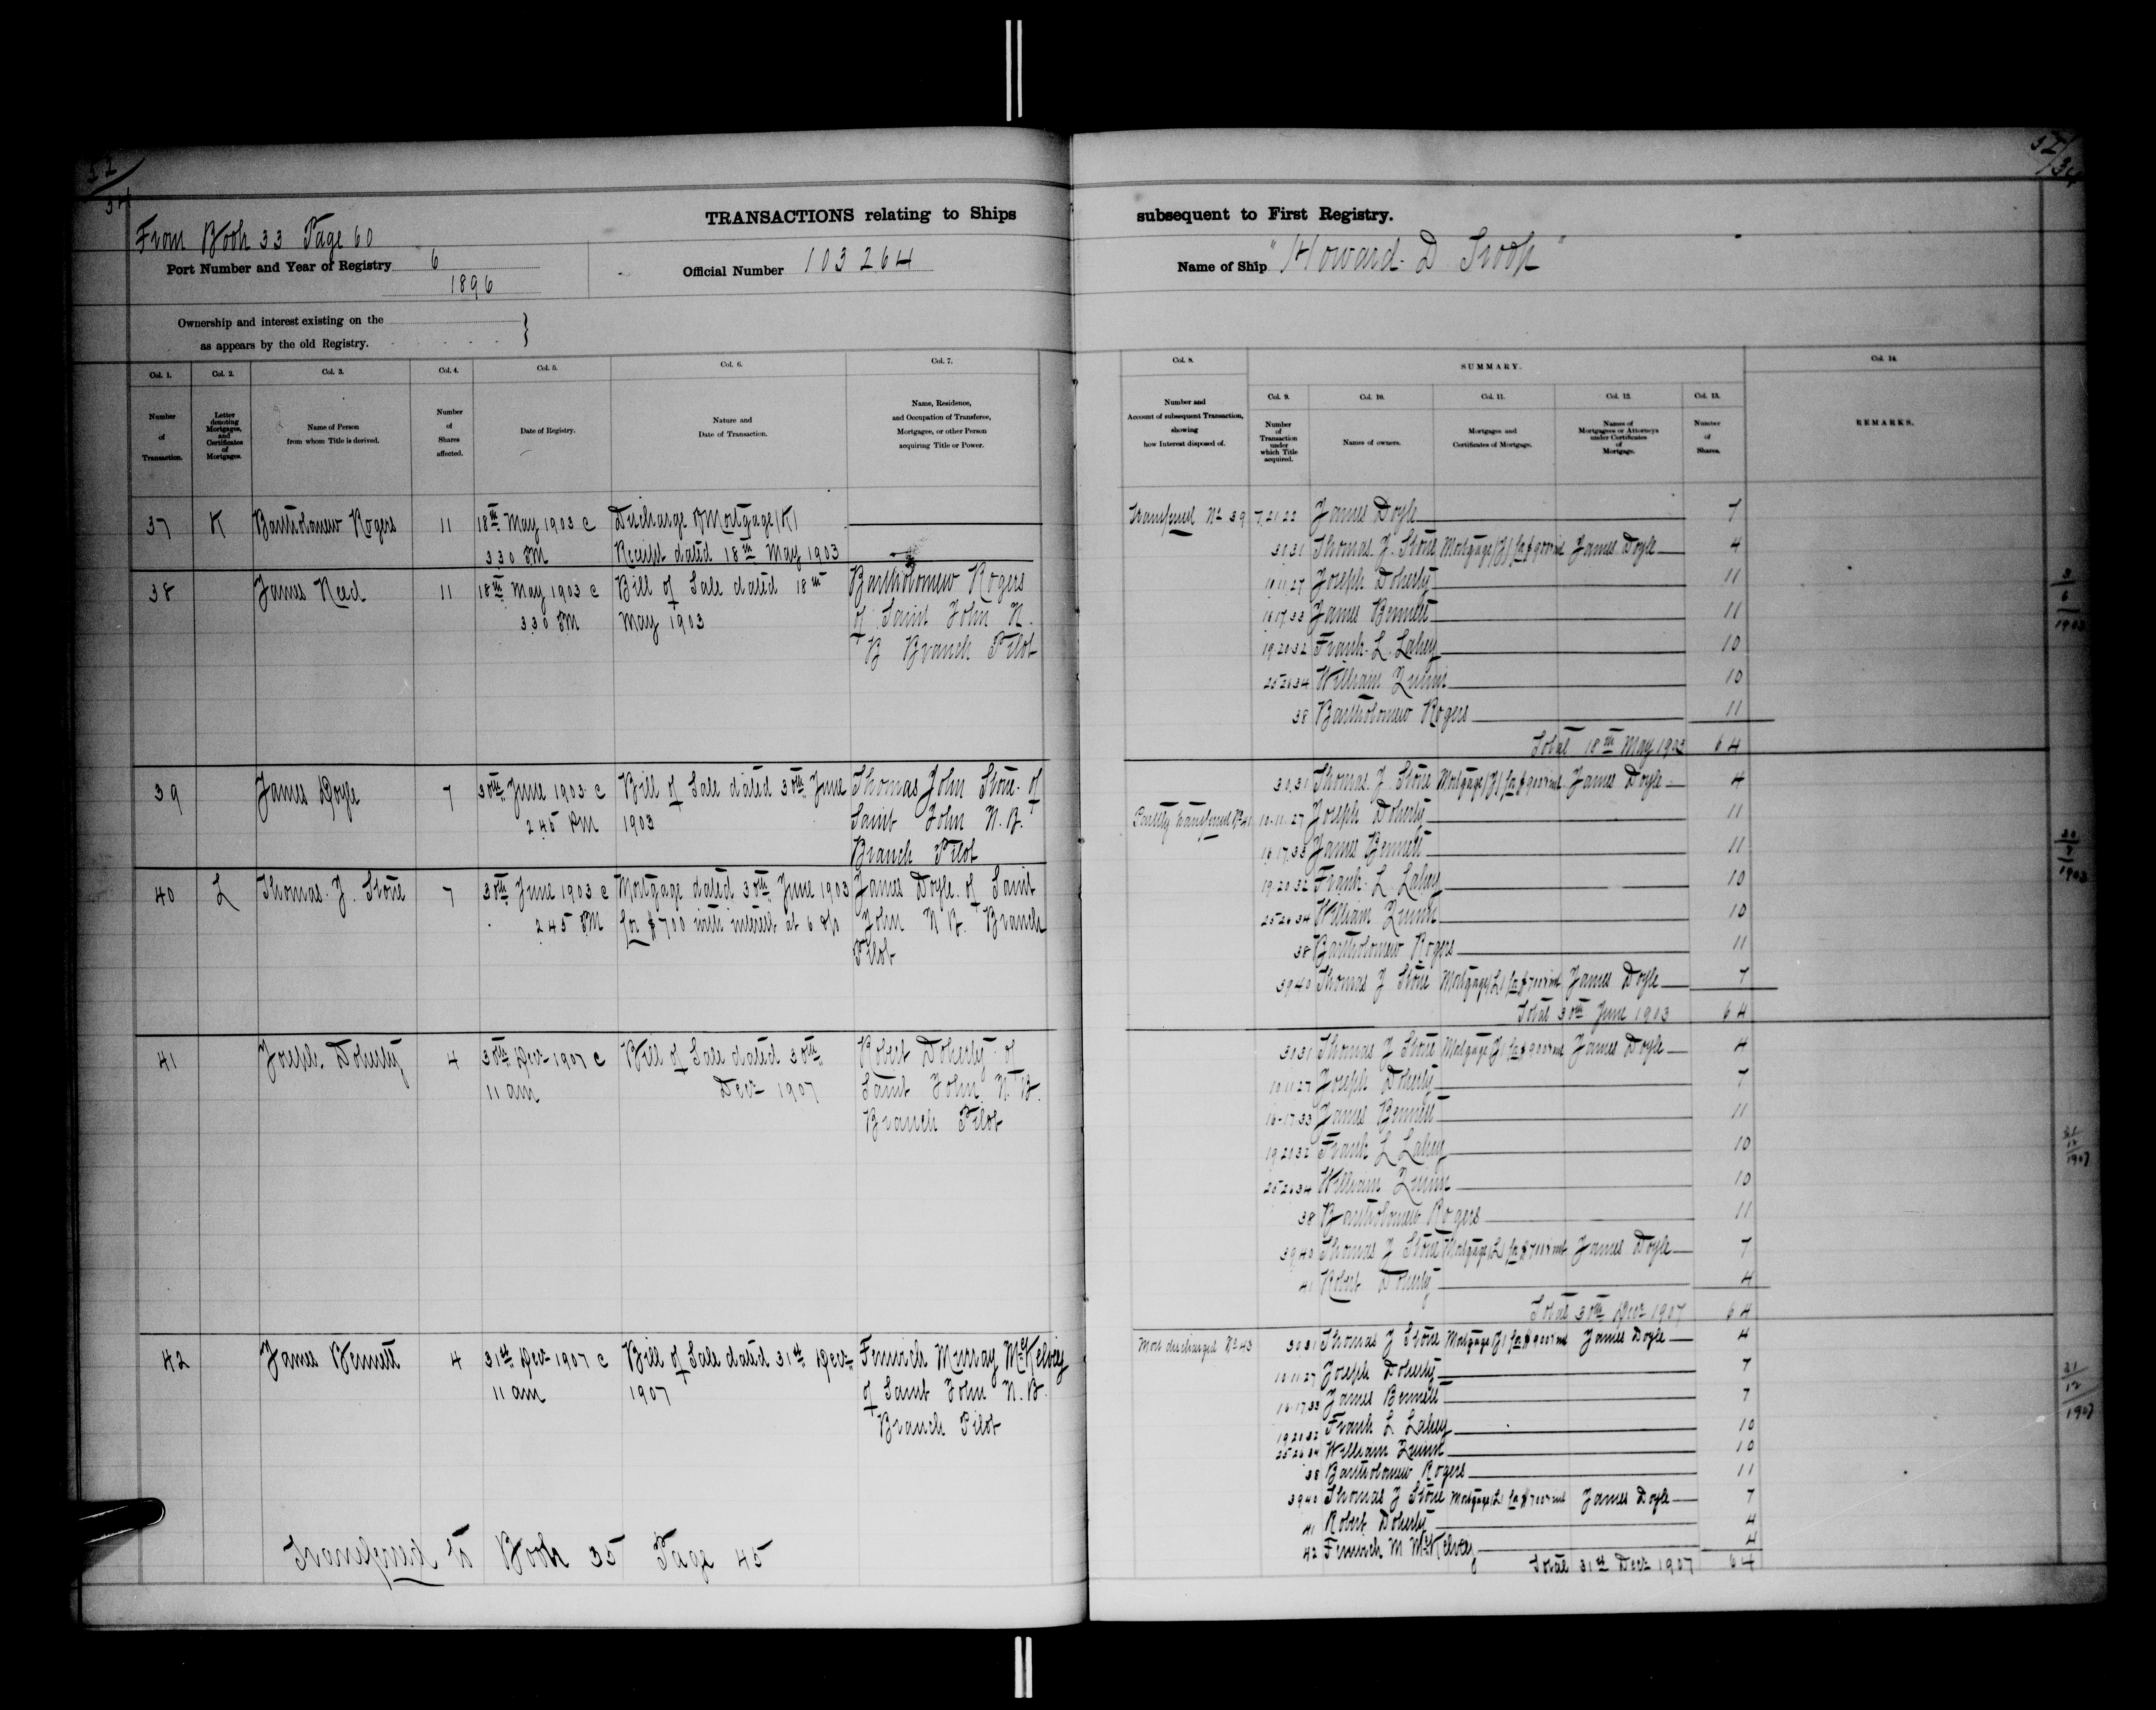 52/34
From Book 33 Page 60
TRANSACTIONS relating to Ships
Port Number and Year of Registry 6
1896
Official Number 103264
Ownership and interest existing on the
as appears by the old Registry.
Col. 1. Col. 2. Col. 3. Col. 4. Col. 5. Col. 6. Col. 7.
Number of Transaction.
Letter denoting Mortgages, and Certificates of Mortgages.
Name of Person from whom Title is derived.
Number of Shares affected.
Date of Registry.
Nature and Date of Transaction.
Name, Residence, and Occupation of Transferee, Mortgagee, or other Person acquiring Title or Power.
37 K Bartholomew Rogers 11 18th May 1903 @ Discharge of Mortgage (K)
3.30 PM Receipt dated 18th May 1903
38 James Reed 11 18th May 1903 @ Bill of Sale dated 18th Bartholomew Rogers
3.30 PM May 1903 of Saint John N.
B Branch Pilot
39 James Doyle 7 30th June 1903 @ Bill of Sale dated 30th June Thomas John Stone of
2.45 PM 1903 Saint John N.B.
Branch Pilot
40 L Thomas J. Stone 7 30th June 1903 @ Mortgage dated 30th June 1903 James Doyle of Saint
2.45 PM for $700 with interest at 6 o/o John N B. Branch
Pilot
41 Joseph Doherty 4 30th Decr 1907 @ Bill of Sale dated 30th Robert Doherty of
11 am Decr 1907 Saint John N.B.
Branch Pilot
42 James Bennett 4 31st Decr 1907 @ Bill of Sale dated 31st Decr Fenwick Murray McKelvey
11 am 1907 of Saint John N.B.
Branch Pilot
Transferred to Book 35 Page 45
52/34
subsequent to First Registry.
Name of Ship "Howard D Troop"
Col. 8. SUMMARY. Col. 14.
Number and Account of subsequent Transaction, showing how Interest disposed of.
Col. 9. Col. 10. Col. 11. Col. 12. Col. 13.
Number of Transaction under which Title acquired.
Names of owners.
Mortgages and Certificates of Mortgage.
Names of Mortgagees or Attorneys under Certificates of Mortgage.
Number of Shares.
REMARKS.
Transferred No 39 7.21.22 James Doyle 7
30 31 Thomas J. Stone Mortgage (J) for $900 & int James Doyle 4
10.11.27 Joseph Doherty 11
16 17.33 James Bennett 11
19.20.32 Frank L. Lahey 10
25 26 34 William Quinn 10
38 Bartholomew Rogers 11
Total 18th May 1903 64
30.31 Thomas J. Stone Mortgage (J) for $900 & int James Doyle 4
Partly transferred No 41 10.11.27 Joseph Doherty 11
16.17.33 James Bennett 11
19.20.32 Frank L. Lahey 10
25 26 34 William Quinn 10
38 Bartholomew Rogers 11
39 40 Thomas J Stone Mortgage (L) for $700 & int James Doyle 7
Total 30th June 1903 64
30 31 Thomas J Stone Mortgage (J) for $900 & int James Doyle 4
10 11 27 Joseph Doherty 7
16-17-33 James Bennett 11
19 20 32 Frank L Lahey 10
25 26 34 William Quinn 10
38 Bartholomew Rogers 11
39 40 Thomas J Stone Mortgage (L) for $700 & int James Doyle 7
41 Robert Doherty 4
Total 30th Decr 1907 64
Mort discharged No 43 30 31 Thomas J Stone Mortgage (J) for $900 & int James Doyle 4
10 11 27 Joseph Doherty 7
16.17.33 James Bennett 7
19 20 32 Frank L Lahey 10
25 26 34 William Quinn 10
38 Bartholomew Rogers 11
39 40 Thomas J Stone Mortgage (L) for $700 & int James Doyle 7
41 Robert Doherty 4
42 Fenwick M McKelvey 4
Total 31st Decr 1907 64
31/12/1907